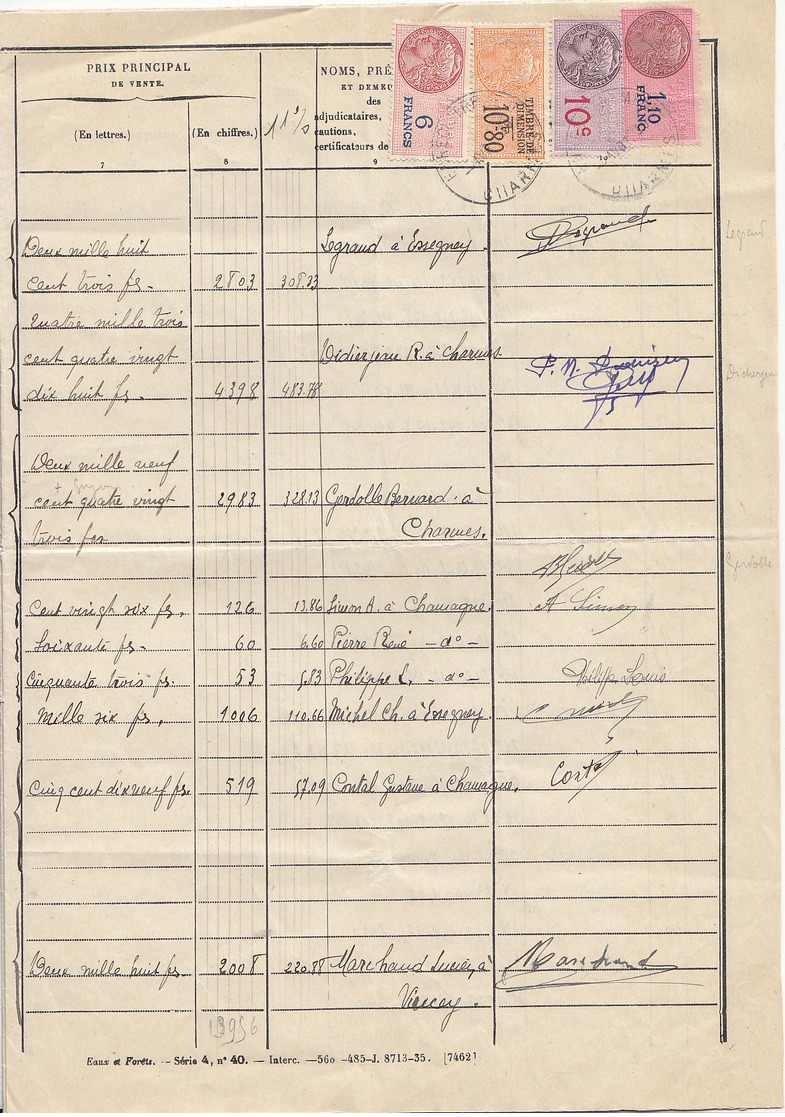 PRIX PRINCIPAL
DE VENTE.
(En lettres.)
(En chiffres.)
7
8
11%
NOMS, PRÉ
ET DEMEU
des
adjudicataires,
cautions,
certificateurs de
9
6
FRANCS
TIMBRE DE
DIMENSION
10F80
10c
1,10
FRANC
CHARMES
Deux mille huit
cent trois fs. 2803 308.33 Legrand à Essegney. Legrand
Legrand
Quatre mille trois
cent quatre vingt Didierjean R. à Charmes.
dix huit fs. 4398 483.78
Deux mille neuf
cent quatre vingt 2983 328.13 Gerdolle Bernard. à
trois frs Charmes.
Gerdolle
Cent vingt six fs. 126 13.86 Simon A. à Chamagne. A Simon
Soixante fs. 60 6.60 Pierre René - do -
Cinquante trois fs. 53 5.83 Philippe L. - do - Philippe Louis
Mille six fs. 1006 110.66 Michel Ch. à Essegney.
Cinq cent dix neuf fs. 519 57.09 Contal Gustave à Chamagne. Contal
Deux mille huit fs. 2008 220.88 Marchand Lucien, à Marchand
Vincey.
13956
Eaux et Forêts. — Série 4, n° 40. — Interc. —560 -485-J. 8713-35. [7462]